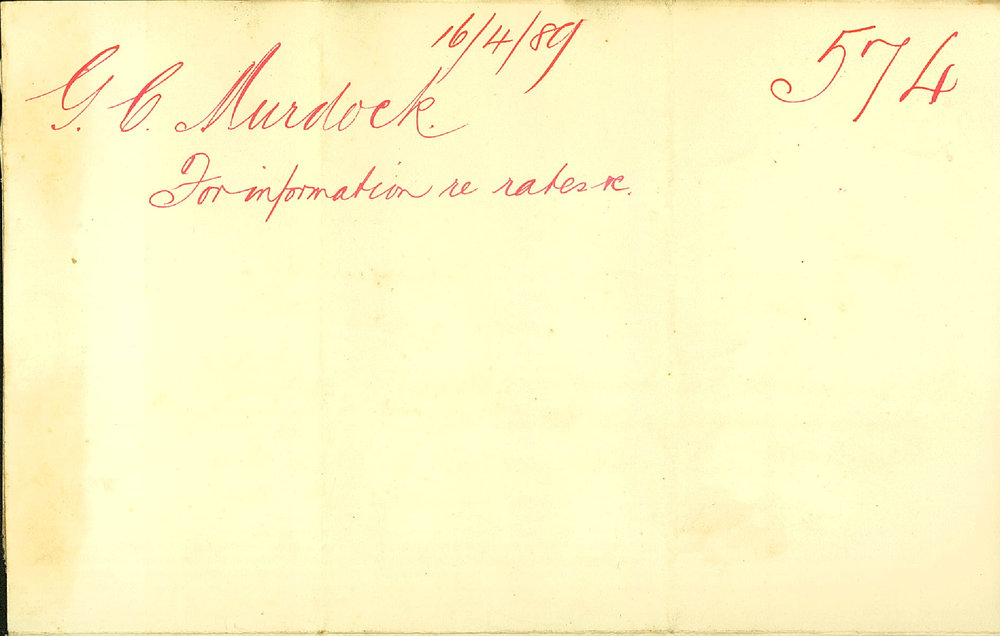 16/4/89
574
G. C. Murdock.
For information re rates &c.